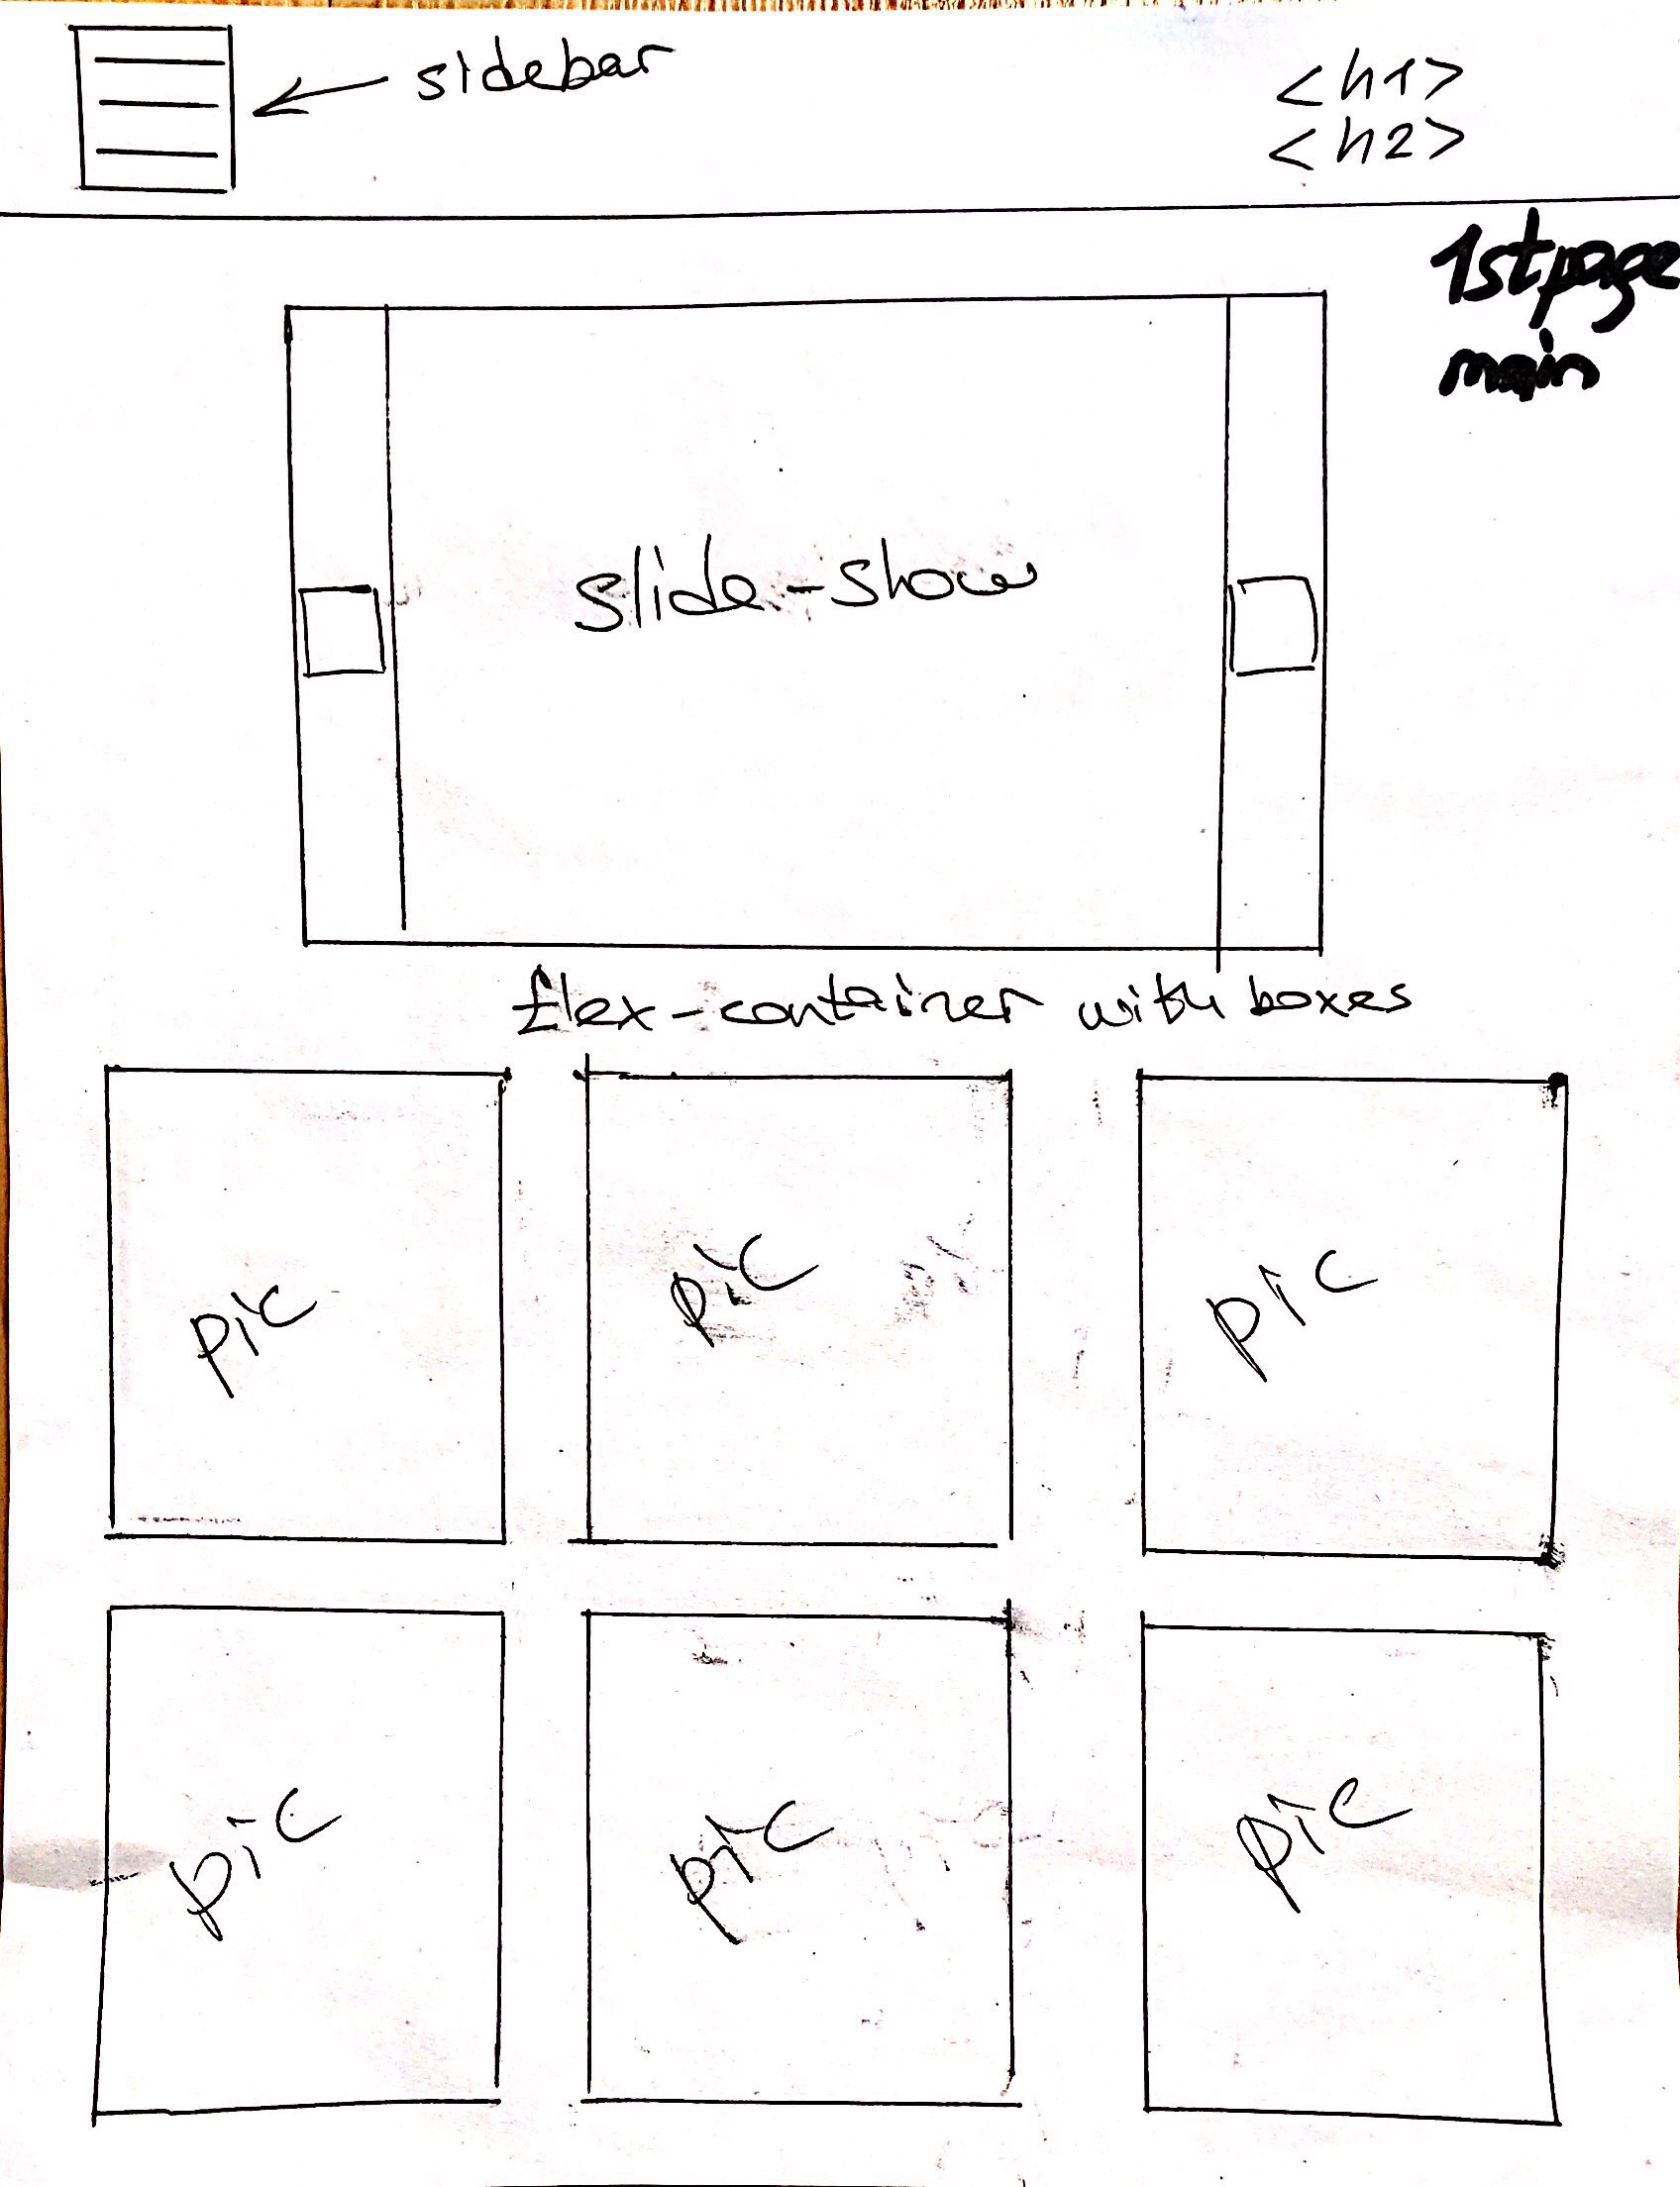 sidebar
<h1>
<h2>
1st page
main
slide-show
flex-container with boxes
pic
pic
pic
pic
pic
pic